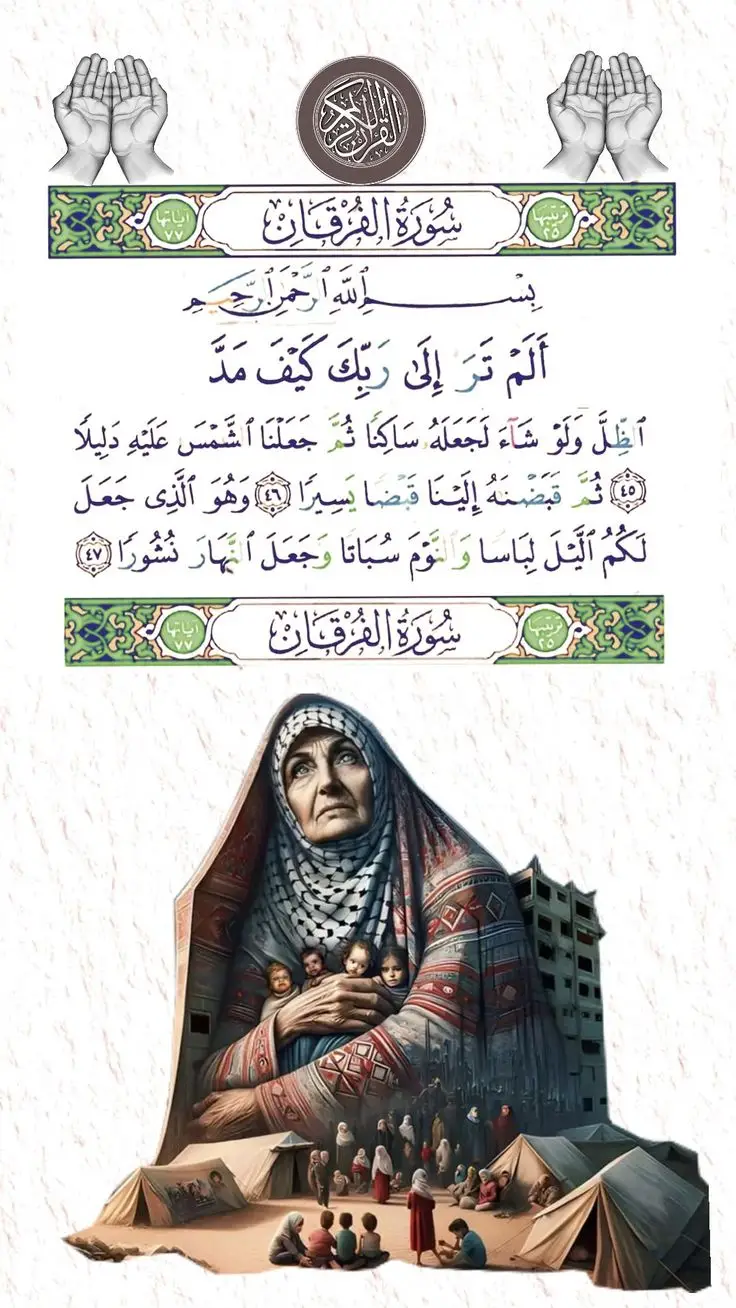 القرآن الكريم
سُورَةُ الفُرْقَانِ
ترتيبها ٢٥
آياتها ٧٧
بِسْمِ ٱللَّهِ ٱلرَّحْمَٰنِ ٱلرَّحِيمِ
أَلَمْ تَرَ إِلَىٰ رَبِّكَ كَيْفَ مَدَّ
ٱلظِّلَّ وَلَوْ شَآءَ لَجَعَلَهُۥ سَاكِنًا ثُمَّ جَعَلْنَا ٱلشَّمْسَ عَلَيْهِ دَلِيلًا
٤٥ ثُمَّ قَبَضْنَٰهُ إِلَيْنَا قَبْضًا يَسِيرًا ٤٦ وَهُوَ ٱلَّذِى جَعَلَ
لَكُمُ ٱلَّيْلَ لِبَاسًا وَٱلنَّوْمَ سُبَاتًا وَجَعَلَ ٱلنَّهَارَ نُشُورًا ٤٧
سُورَةُ الفُرْقَانِ
ترتيبها ٢٥
آياتها ٧٧